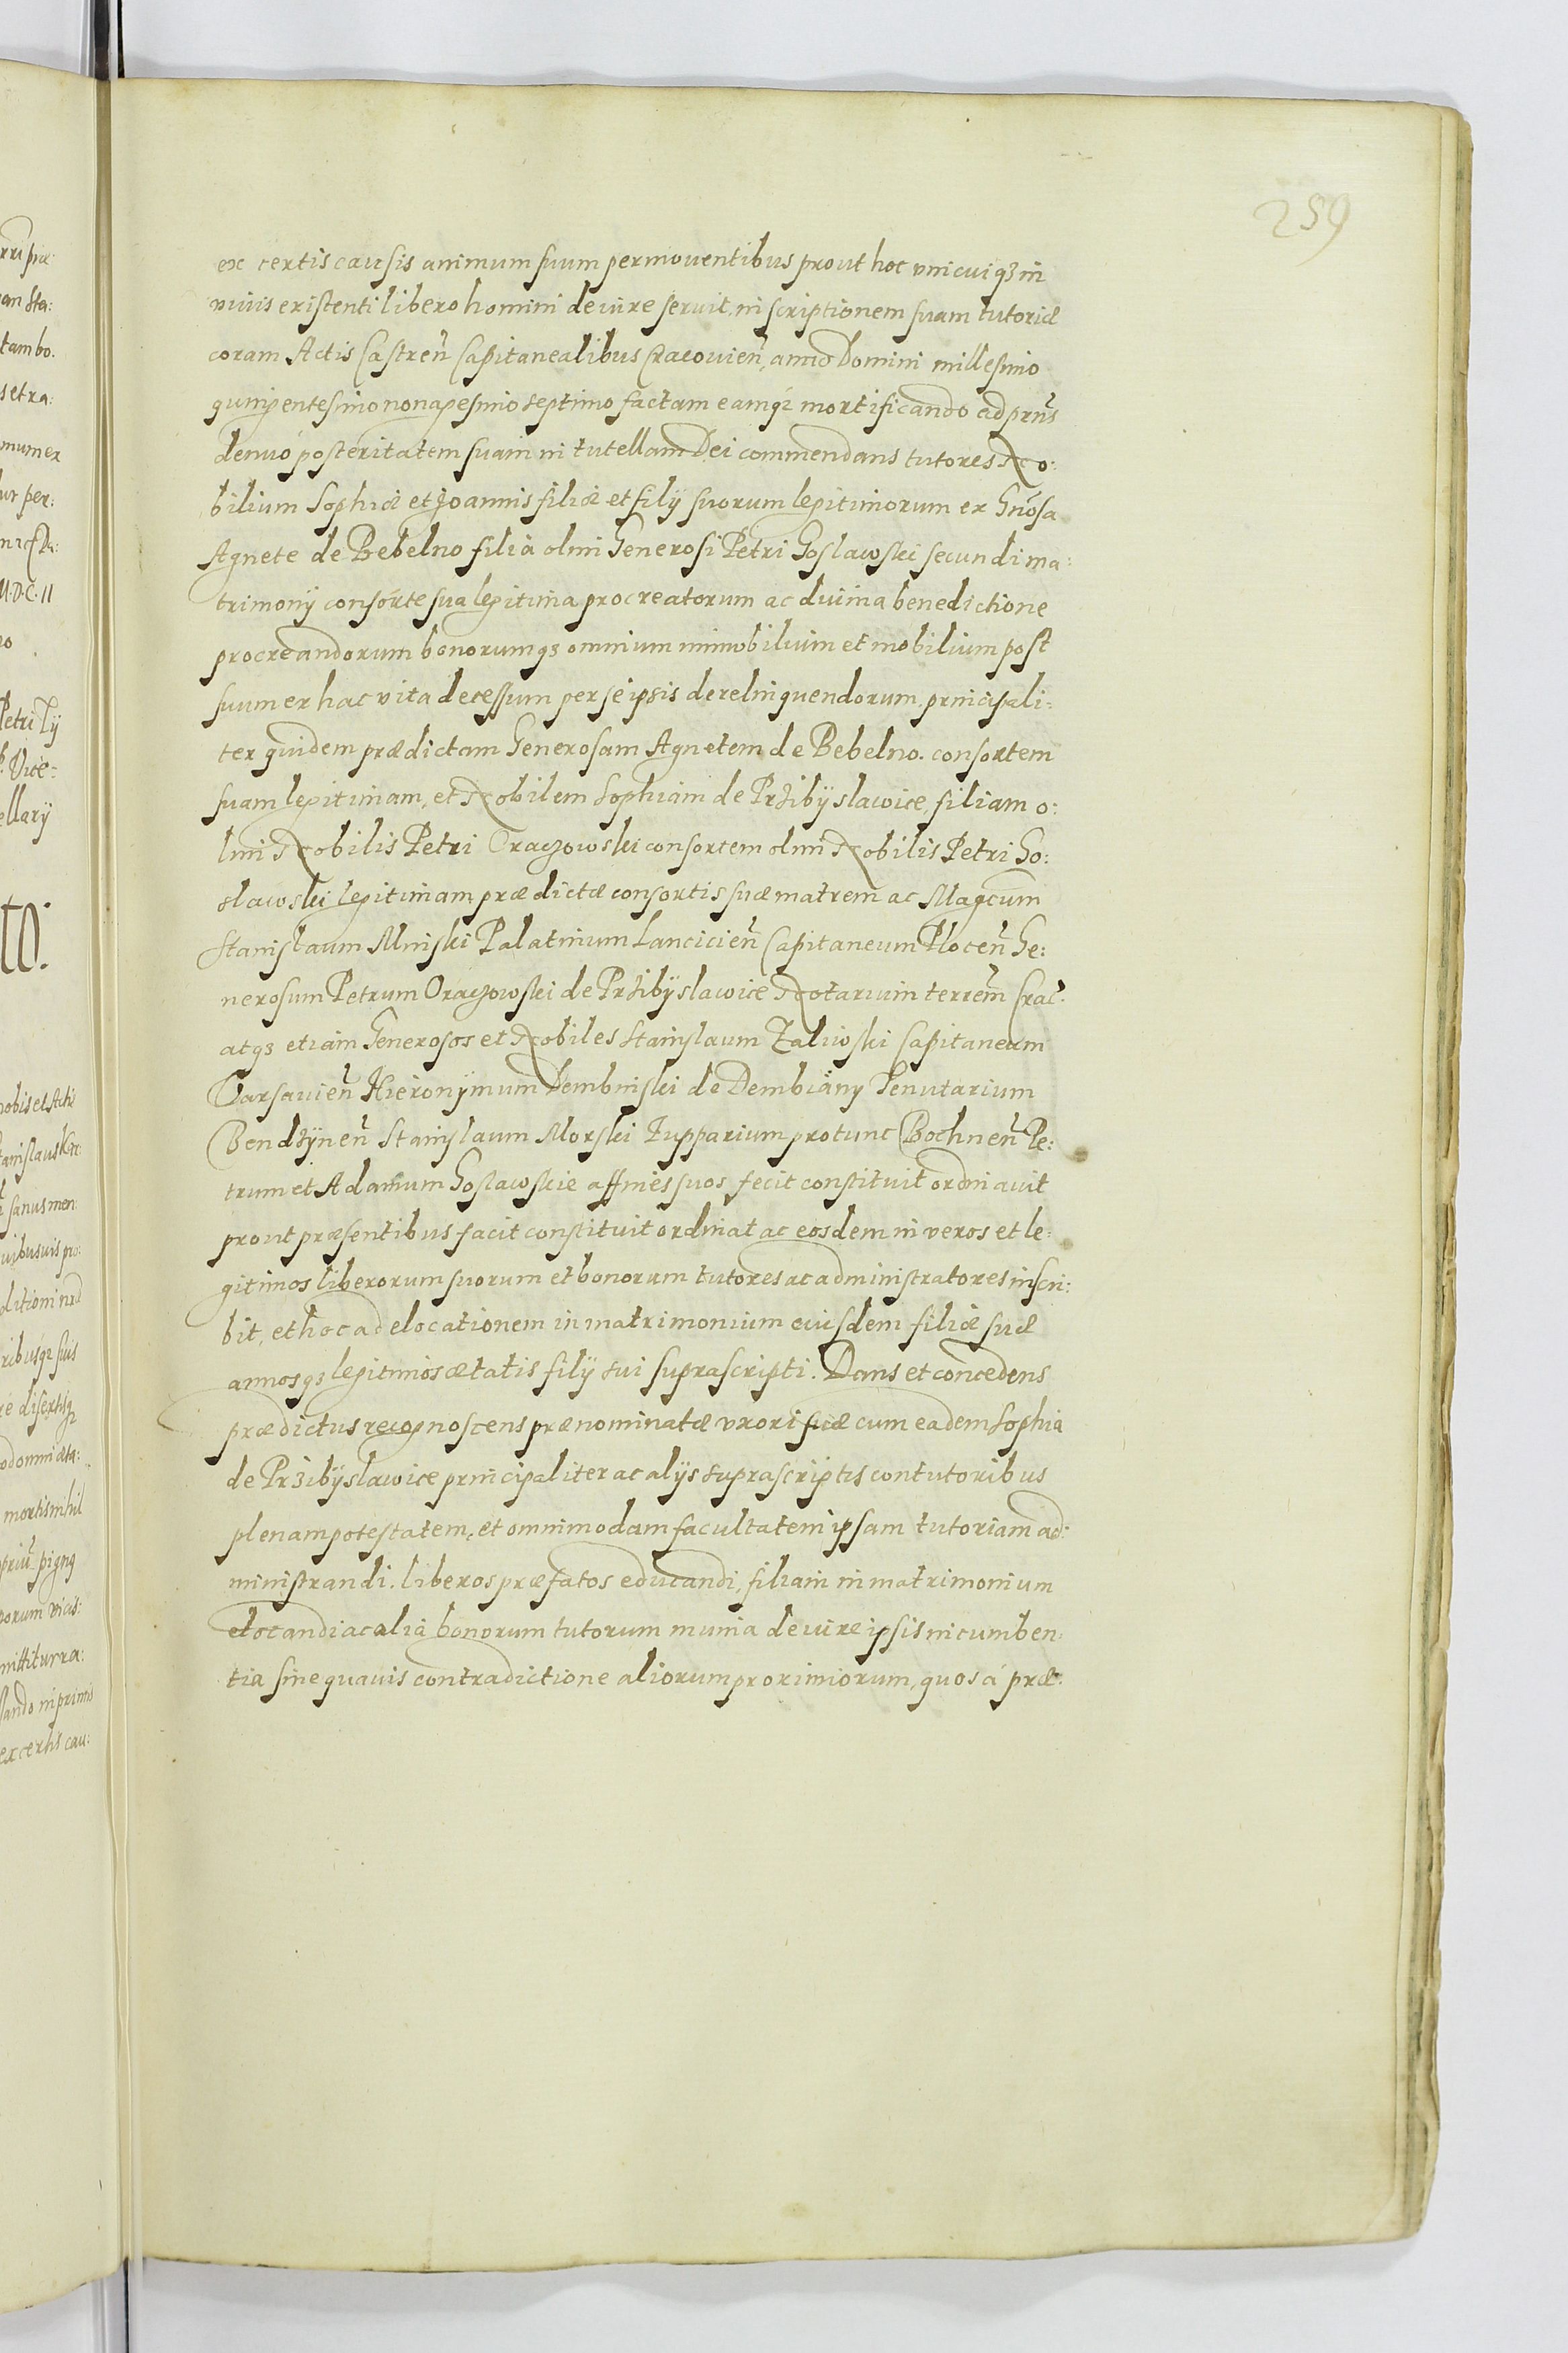 259
ex certis causis animum suum permouentibus prout hoc vnicuiqꝫ in
viuis existenti libero homini de iure seruit, inscriptionem suam tutoriæ
coram Actis Castreñ Capitanealibus Cracouieñ, anno Domini millesimo
quingentesimo nonagesimo septimo factam eamqꝫ mortificando ad prñs
denuó posteritatem suam in tutellam Dei commendans tutores No:
bilium Sophiæ et Joannis filiæ et filÿ suorum legitimorum ex Gnosa
Agnete de Bebelno filia olim Generosi Petri Goslawski secundi ma:
trimonÿ consorte sua legitima procreatorum ac diuina benedictione
procreandorum bonorumqꝫ omnium immobilium et mobilium post
suum ex hac vita decessum per se ipsis derelinquendorum, principali:
ter quidem prædictam Generosam Agnetem de Bebelno. consortem
suam legitimam, et Nobilem Sophiam de Prżibÿslawice, filiam o:
lim Nobilis Petri Oraczowski consortem olim Nobilis Petri Go:
slawski legitimam prædictæ consortis suæ matrem ac Magcum
Stanislaum Minski Palatinum Lancicieñ Capitaneum Ploceñ Ge:
nerosum Petrum Oraczowski de Prżibÿslawice Notarium terreñ Crac:
atqꝫ etiam Generosos et Nobiles Stanislaum Zaliwski Capitaneum
Varsauieñ Hieronÿmum Dembinski de Dembiany Tenutarium
Bendżÿneñ Stanislaum Morski Zupparium protunc Bochneñ Pe:
trum et Adamum Goslawskie affines suos fecit constituit ordinauit
prout præsentibus facit constituit ordinat ac eosdem in veros et le:
gitimos liberorum suorum et bonorum tutores ac administratores inscri:
bit, et hoc ad elocationem in matrimonium eiusdem filiæ suæ
annosqꝫ legitimos ætatis filÿ sui suprascripti. Dans et concedens
prædictus recognoscens prænominatæ vxori suæ cum eadem Sophia
de Prżibÿslawice principaliter ac alÿs suprascriptis contutoribus
plenam potestatem, et omnimodam facultatem ipsam tutoriam ad:
ministrandi. liberos præfatos educandi, filiam in matrimonium
elocandi ac alia bonorum tutorum munia de iure ipsis incumben:
tia sine quauis contradictione aliorum proximiorum, quos á præ: